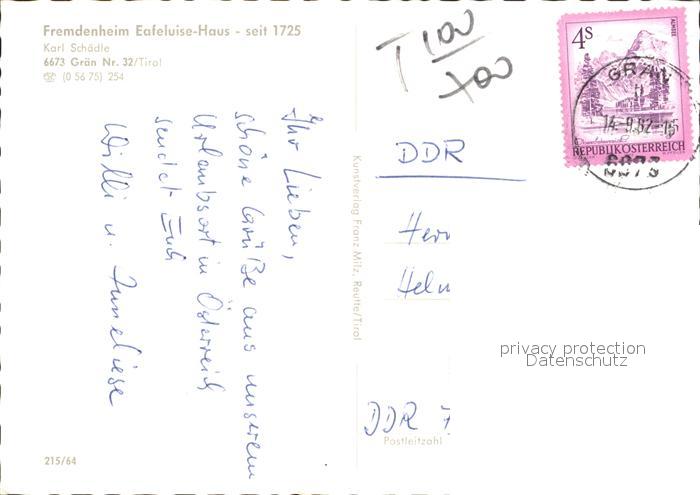 Fremdenheim Eafeluise-Haus - seit 1725
Karl Schädle
6673 Grän Nr. 32/Tirol
☎ (0 56 75) 254
Ihr Lieben,
schöne Grüße aus unserem
Urlaubsort in Österreich
sendet Euch
Willi u. Anneliese
215/64
Kunstverlag Franz Milz, Reutte/Tirol
T 100
400
DDR
Herr
Helm
DDR 7
Postleitzahl
4S
ALMSEE
REPUBLIK ÖSTERREICH
GRÄN
14.-9.82-15
6673
privacy protection
Datenschutz